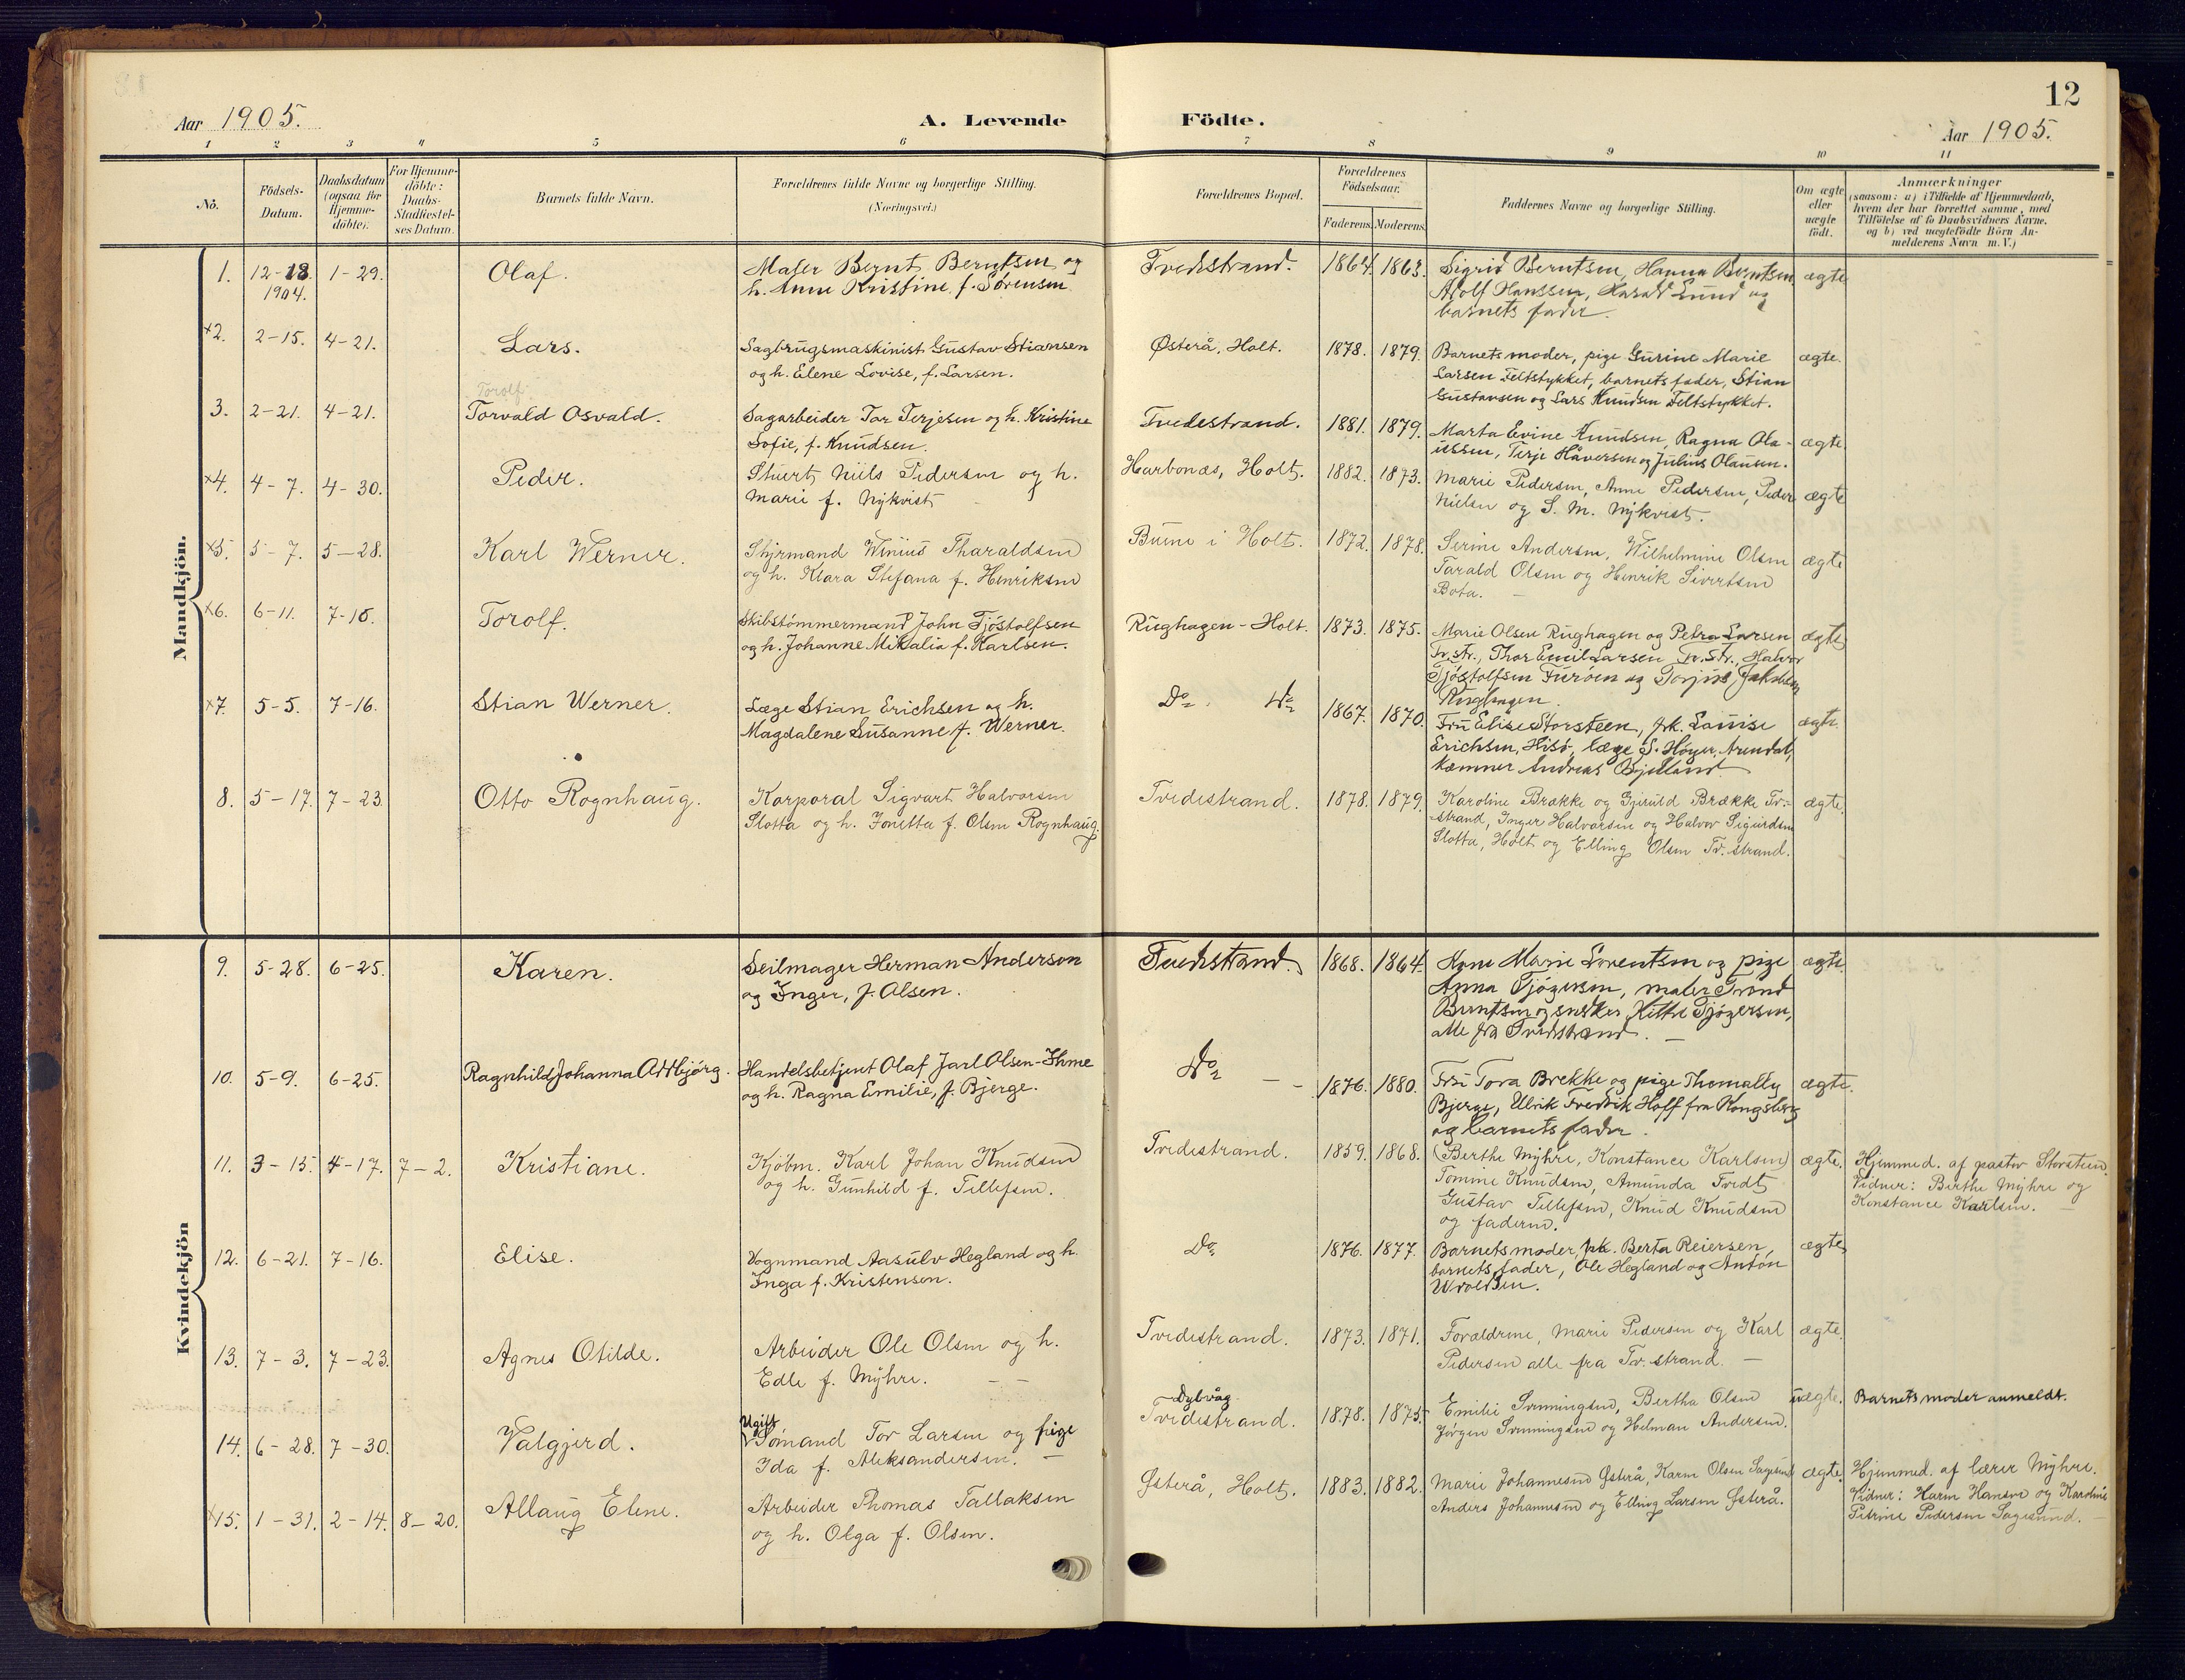 12
Aar 1905.
A. Levende Födte.
Aar 1905.
1 2 3 4 5 6 7 8 9 10 11
No.
Födsels-Datum.
Daabsdatum (ogsaa for Hjemme-döbte).
For Hjemme-döbte: Daabs-Stadfæstel-ses Datum.
Barnets fulde Navn.
Forældrenes fulde Navne og borgerlige Stilling.
(Næringsvei.)
Forældrenes Bopæl.
Forældrenes Födselsaar.
Faderens. Moderens.
Faddernes Navne og borgerlige Stilling.
Om ægte eller uægte födt.
Anmærkninger
(saasom: a) i Tilfælde af Hjemmedaab,
hvem der har forrettet samme, med
Tilföielse af to Daabsvidners Navne.
og b) ved uægtefödte Börn An-
melderens Navn m. V.)
Mandkjön.
1. 12-28. 1-29. Olaf. Maler Bernt Berntsen og Tvedestrand. 1864. 1863. Sigrid Berntsen, Hanna Berntsen, ægte
1904. h. Anne Kristine f. Sørensen Adolf Hanssen, Harald Lund og
barnets fader.
x2. 2-15. 4-21. Lars. Sagbrugsmaskinist Gustav Stiansen Østerå, Holt. 1878. 1879. Barnets moder, pige Gurine Marie ægte.
og h. Elene Lovise, f. Larsen. Larsen Feltstykket, barnets fader, Stian
Gustavsen og Lars Knudsen Feltstykket.
Torolf
3. 2-21. 4-21. Torvald Osvald. Sagarbeider Tor Terjesen og h. Kristine Tvedestrand. 1881. 1879. Marta Evine Knudsen, Ragna Ola- ægte
Sofie, f. Knudsen. ussen, Terje Håversen og Julius Olausen.
x4. 4-7. 4-30. Peder. Stuert Niels Pedersen og h. Harbonæs, Holt. 1882. 1873. Marie Pedersen, Anne Pedersen, Peder ægte
Marie f. Nykvist Nielsen og S. M. Nykvist.
x5. 5-7. 5-28. Karl Werner. Styrmand Winius Tharaldsen Buene i Holt. 1872. 1878. Serine Andersen, Wilhelmine Olsen ægte
og h. Klara Stefana f. Henriksen Tarald Olsen og Henrik Sivertsen
Bota.
x6. 6-11. 7-10. Torolf. Skibstømmermand John Tjøstolfsen Rughagen-Holt. 1873. 1875. Marie Olsen Rughagen og Petra Larsen ægte
og h. Johanne Mikalia f. Karlsen. Tv.str., Thor Emil Larsen Tv.str., Halvor
Tjøstolfsen Furøen og Torjus Jakobsen
Rughagen.
x7. 5-5. 7-16. Stian Werner. Læge Stian Erichsen og h. Do. Do. 1867. 1870. Fru Elise Storsteen, frk. Louise ægte.
Magdalene Susanne f. Werner. Erichsen, Hisø, læge S. Høyer, Arendal,
kæmner Andreas Bjelland.
8. 5-17. 7-23. Otto Rognhaug. Korporal Sigvart Halvorsen Tvedestrand. 1878. 1879. Karoline Brække og Gjeruld Brække Tv.- ægte.
Slotta og h. Jonetta f. Olsen Rognhaug. strand, Inger Halvorsen og Halvor Sigurdsen
Slotta, Holt og Elling Olsen Tv. strand.
Kvindekjön
9. 5-28. 6-25. Karen. Seilmager Herman Anderson Tvedestrand. 1868. 1864. Anne Marie Lorentsen og pige ægte.
og Inger, f. Olsen. Anna Tjøgersen, maler Trond
Berntsen og snedker Kittel Tjøgersen,
alle fra Tvedestrand.
10. 5-9. 6-25. Ragnhild Johanna Oddbjørg. Handelsbetjent Olaf Jarl Olsen-Ihme Do. 1876. 1880. Fru Tora Brekke og pige Thomally ægte.
og h. Ragna Emilie, f. Bjerge. Bjerge, Ulrik Fredrik Hoff fra Kongsberg
og barnets fader.
11. 3-15. 4-17. 7-2. Kristiane. Kjøbm. Karl Johan Knudsen Tvedestrand. 1859. 1868. (Berthe Myhre, Konstance Karlsen) ægte. Hjemmed. af pastor Storsteen.
og h. Gunhild f. Tellefsen. Tomine Knudsen, Amunda Tvedt, Vidner: Berthe Myhre og
Gustav Tellefsen, Knud Knudsen Konstance Karlsen.
og faderen.
12. 6-21. 7-16. Elise. Vognmand Aasulv Hegland og h. Do. 1876. 1877. Barnets moder, frk. Berta Reiersen, ægte
Inga f. Kristensen. barnets fader, Ole Hegland og Anton
Wroldsen.
13. 7-3. 7-23. Agnes Otilde. Arbeider Ole Olsen og h. Tvedestrand. 1873. 1871. Forældrene, Marie Pedersen og Karl ægte.
Edle f. Myhre. Pedersen alle fra Tv. strand.
Ugift Dybvåg
14. 6-28. 7-30. Valgjerd. Sømand Tor Larsen og pige Tvedestrand. 1878. 1875. Emilie Svenningsen, Bertha Olsen uægte. Barnets moder anmeldt.
Ida f. Aleksandersen. Jørgen Svenningsen og Helman Andersen.
x15. 1-31. 2-14. 8-20. Allaug Elene. Arbeider Thomas Tallaksen Østerå, Holt. 1883. 1882. Marie Johannesen Østerå, Karen Olsen Sagesund ægte. Hjemmed. af lærer Myhre.
og h. Olga f. Olsen. Anders Johannesen og Elling Larsen Østerå. Vidner: Karen Hansen og Karoline
Petrine Pedersen Sagesund.